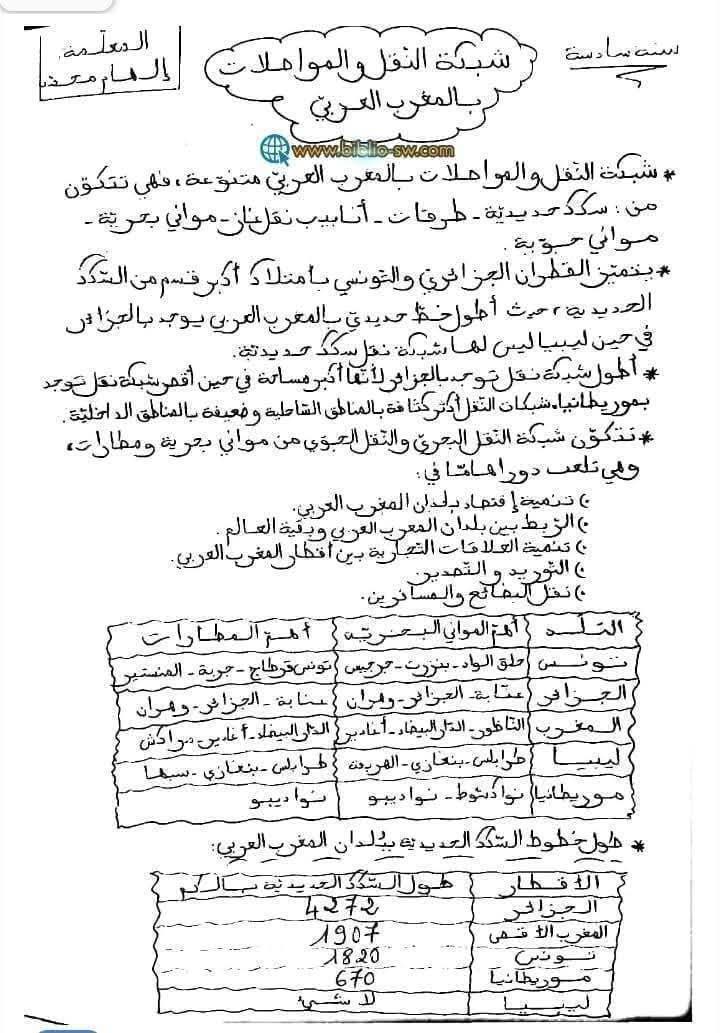 سنة سادسة
المعلمة
إلهام محمد
شبكة النقل والمواصلات
بالمغرب العربيّ
www.biblio-sw.com
* شبكة النقل والمواصلات بالمغرب العربيّ متنوّعة، فهي تتكوّن
من: سكك حديديّة - طرقات - أنابيب نقل غاز - مواني بحريّة -
مواني جوّيّة.
* يتميّز القطران الجزائريّ والتونسي بامتلاك أكبر قسم من السّكك
الحديدية، حيث أطول خطّ حديديّ بالمغرب العربي يوجد بالجزائر
في حين ليبيا ليس لها شبكة نقل سكك حديديّة.
* أطول شبكة نقل توجد بالجزائر لأنّها أكبر مساحة في حين أقصر شبكة نقل توجد
بموريطانيا. شبكات النّقل أكثر كثافة بالمناطق السّاحلية وضعيفة بالمناطق الداخليّة.
* تتكوّن شبكة النقل البحريّ والنّقل الجوّي من مواني بحرية ومطارات،
وهي تلعب دورا هامّا في:
) تنمية إقتصاد بلدان المغرب العربي.
) الرّبط بين بلدان المغرب العربي وبقية العالم.
) تنمية العلاقات التّجارية بين أقطار المغرب العربي.
) التّوريد والتّصدير.
) نقل البضائع والمسافرين.
البلد أهمّ المواني البحريّة أهمّ المطارات
تونس حلق الواد - بنزرت - جرجيس تونس قرطاج - جربة - المنستير
الجزائر عنّابة - الجزائر - وهران عنابة - الجزائر - وهران
المغرب النّاظور - الدّار البيضاء - أغادير الدّار البيضاء - أغادير - مراكش
ليبيا طرابلس - بنغازي طرابلس - بنغازي - سبها
موريطانيا نواكشوط - نواديبو نواديبو
* طول خطوط السّكك الحديديّة ببلدان المغرب العربي:
الأقطار طول السّكك الحديديّة بالكم
الجزائر 4272
المغرب الأقصى 1907
تونس 1820
موريطانيا 670
ليبيا لا شيء